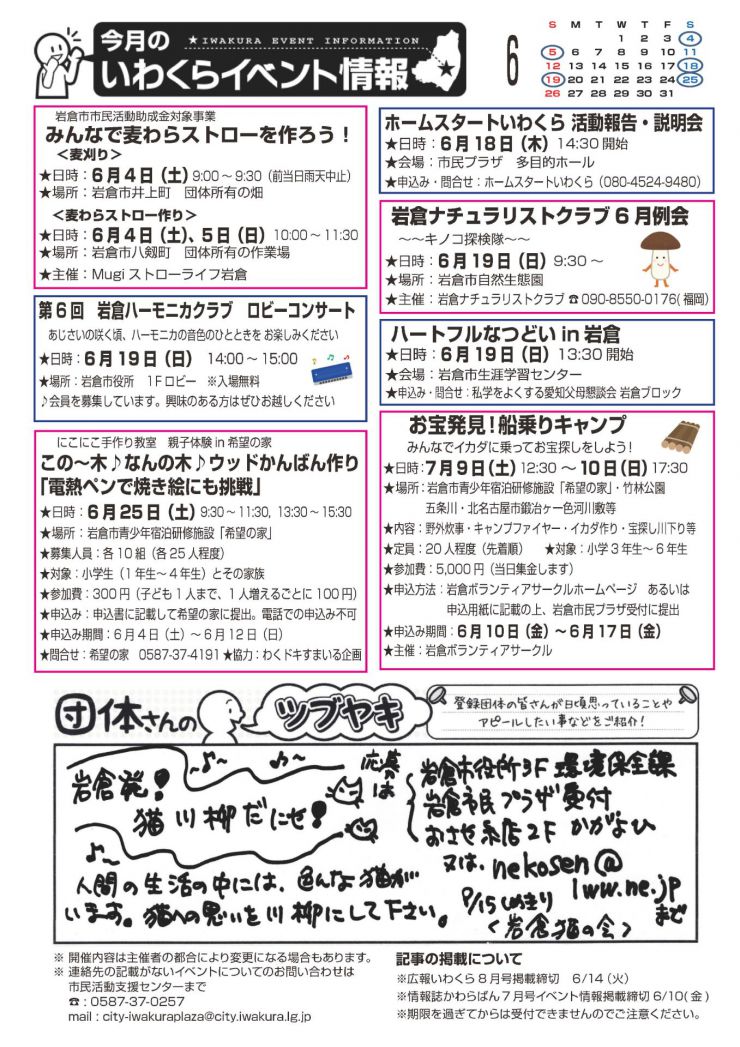 今月の
★IWAKURA EVENT INFORMATION
いわくらイベント情報
6
S M T W T F S
1 2 3 4
5 6 7 8 9 10 11
12 13 14 15 16 17 18
19 20 21 22 23 24 25
26 27 28 29 30 31
岩倉市市民活動助成金対象事業
みんなで麦わらストローを作ろう！
＜麦刈り＞
★日時：6月4日（土）9:00～9:30（前当日雨天中止）
★場所：岩倉市井上町　団体所有の畑
＜麦わらストロー作り＞
★日時：6月4日（土）、5日（日）10:00～11:30
★場所：岩倉市八剱町　団体所有の作業場
★主催：Mugiストローライフ岩倉
第6回　岩倉ハーモニカクラブ　ロビーコンサート
あじさいの咲く頃、ハーモニカの音色のひとときを お楽しみください
★日時：6月19日（日）　14:00～15:00
★場所：岩倉市役所　1Fロビー　※入場無料
♪会員を募集しています。興味のある方はぜひお越しください
にこにこ手作り教室　親子体験in希望の家
この～木♪なんの木♪ウッドかんばん作り
「電熱ペンで焼き絵にも挑戦」
★日時：6月25日（土）9:30～11:30, 13:30～15:30
★場所：岩倉市青少年宿泊研修施設「希望の家」
★募集人員：各10組（各25人程度）
★対象：小学生（1年生～4年生）とその家族
★参加費：300円（子ども1人まで、1人増えるごとに100円）
★申込み：申込書に記載して希望の家に提出。電話での申込み不可
★申込み期間：6月4日（土）～6月12日（日）
★問合せ：希望の家　0587-37-4191 ★協力：わくドキすまいる企画
ホームスタートいわくら 活動報告・説明会
★日時：6月18日（木）14:30開始
★会場：市民プラザ　多目的ホール
★申込み・問合せ：ホームスタートいわくら（080-4524-9480）
岩倉ナチュラリストクラブ6月例会
～～キノコ探検隊～～
★日時：6月19日（日）9:30～
★場所：岩倉市自然生態園
★主催：岩倉ナチュラリストクラブ ☎090-8550-0176(福岡)
ハートフルなつどいin岩倉
★日時：6月19日（日）13:30開始
★会場：岩倉市生涯学習センター
★申込み・問合せ：私学をよくする愛知父母懇談会 岩倉ブロック
お宝発見！船乗りキャンプ
みんなでイカダに乗ってお宝探しをしよう！
★日時：7月9日（土）12:30～10日（日）17:30
★場所：岩倉市青少年宿泊研修施設「希望の家」・竹林公園
五条川・北名古屋市鍛冶ケ一色河川敷等
★内容：野外炊事・キャンプファイヤー・イカダ作り・宝探し川下り等
★定員：20人程度（先着順）　★対象：小学3年生～6年生
★参加費：5,000円（当日集金します）
★申込方法：岩倉ボランティアサークルホームページ　あるいは
申込用紙に記載の上、岩倉市民プラザ受付に提出
★申込み期間：6月10日（金）～6月17日（金）
★主催：岩倉ボランティアサークル
団体さんの
ツブヤキ
登録団体の皆さんが日頃思っていることや
アピールしたい事などをご紹介！
岩倉発！
猫川柳だにゃ！
人間の生活の中には、色んな猫が
います。猫への思いを川柳にして下さい。
応募は
岩倉市役所3F 環境保全課
岩倉市民プラザ受付
おさせ茶店2F かがよひ
又は、nekosen@
iww.ne.jp
まで
8/15しめきり
＜岩倉猫の会＞
※ 開催内容は主催者の都合により変更になる場合もあります。
※ 連絡先の記載がないイベントについてのお問い合わせは
市民活動支援センターまで
☎ : 0587-37-0257
mail : city-iwakuraplaza@city.iwakura.lg.jp
記事の掲載について
※広報いわくら8月号掲載締切　6/14（火）
※情報誌かわらばん7月号イベント情報掲載締切 6/10(金)
※期限を過ぎてからは受付できませんのでご注意ください。